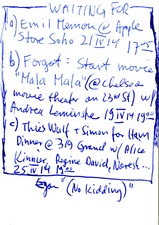 WAITING FOR
a) Emil Memon @ Apple
Store Soho 21 IV 14 17
b) Forgot: Start movie
"Mala Mala" (@ Chelsea
movie theater on 23rd St) w/
Andrea 19 IV 14 19
c) Thies Walt + Simon for
Dinner @ 319 Grand w/ Alice
Kinnor, Regine David,
25 IV 14 19
(No Kidding)